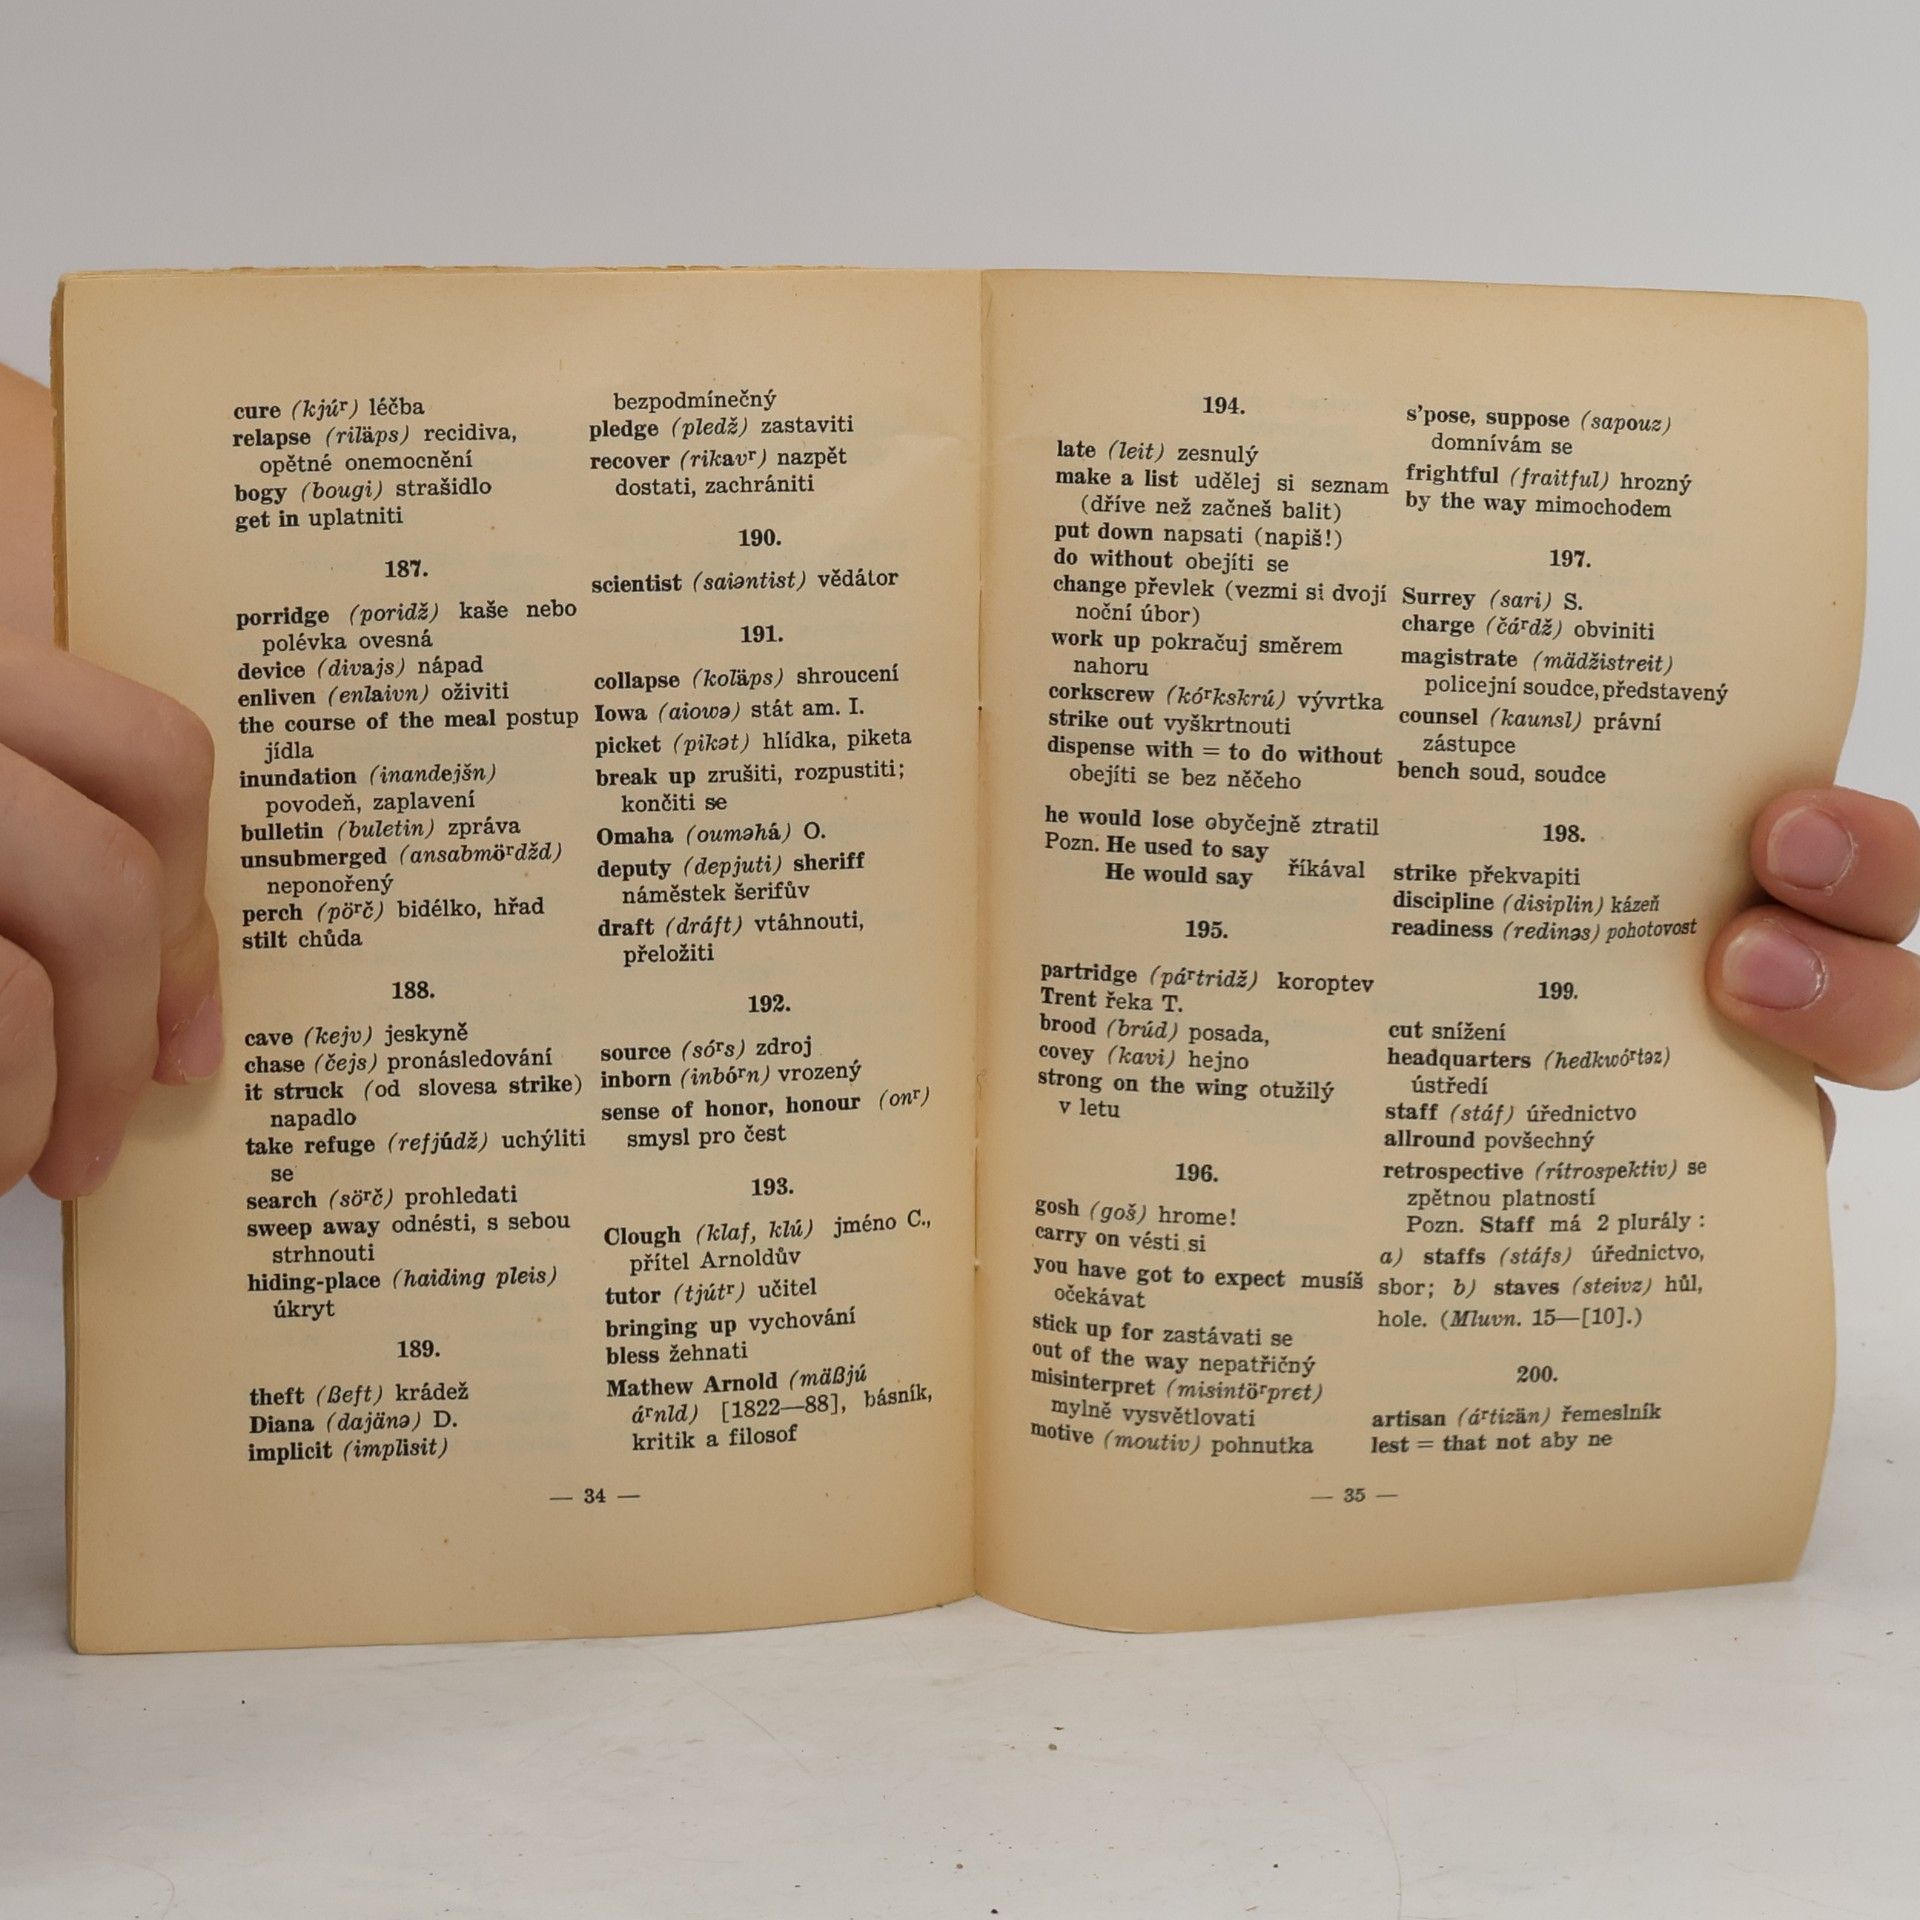 cure (kjúʳ) léčba
relapse (riläps) recidiva,
opětné onemocnění
bogy (bougi) strašidlo
get in uplatniti
187.
porridge (poridž) kaše nebo
polévka ovesná
device (divajs) nápad
enliven (enlaivn) oživiti
the course of the meal postup
jídla
inundation (inandejšn)
povodeň, zaplavení
bulletin (buletin) zpráva
unsubmerged (ansabmöʳdžd)
neponořený
perch (pöʳč) bidélko, hřad
stilt chůda
188.
cave (kejv) jeskyně
chase (čejs) pronásledování
it struck (od slovesa strike)
napadlo
take refuge (refjúdž) uchýliti
se
search (söʳč) prohledati
sweep away odnésti, s sebou
strhnouti
hiding-place (haiding pleis)
úkryt
189.
theft (ßeft) krádež
Diana (dajänə) D.
implicit (implisit)
bezpodmínečný
pledge (pledž) zastaviti
recover (rikavʳ) nazpět
dostati, zachrániti
190.
scientist (saiəntist) vědátor
191.
collapse (koläps) shroucení
Iowa (aiowə) stát am. I.
picket (pikət) hlídka, piketa
break up zrušiti, rozpustiti;
končiti se
Omaha (ouməhá) O.
deputy (depjuti) sheriff
náměstek šerifův
draft (dráft) vtáhnouti,
přeložiti
192.
source (sóʳs) zdroj
inborn (inbóʳn) vrozený
sense of honor, honour (onʳ)
smysl pro čest
193.
Clough (klaf, klú) jméno C.,
přítel Arnoldův
tutor (tjútʳ) učitel
bringing up vychování
bless žehnati
Mathew Arnold (mäßjú
áʳnld) [1822—88], básník,
kritik a filosof
— 34 —
194.
late (leit) zesnulý
make a list udělej si seznam
(dříve než začneš balit)
put down napsati (napiš!)
do without obejíti se
change převlek (vezmi si dvojí
noční úbor)
work up pokračuj směrem
nahoru
corkscrew (kóʳkskrú) vývrtka
strike out vyškrtnouti
dispense with = to do without
obejíti se bez něčeho
he would lose obyčejně ztratil
Pozn. He used to say
He would say říkával
195.
partridge (páʳtridž) koroptev
Trent řeka T.
brood (brúd) posada,
covey (kavi) hejno
strong on the wing otužilý
v letu
196.
gosh (goš) hrome!
carry on vésti si
you have got to expect musíš
očekávat
stick up for zastávati se
out of the way nepatřičný
misinterpret (misintöʳpret)
mylně vysvětlovati
motive (moutiv) pohnutka
s'pose, suppose (sapouz)
domnívám se
frightful (fraitful) hrozný
by the way mimochodem
197.
Surrey (sari) S.
charge (čáʳdž) obviniti
magistrate (mädžistreit)
policejní soudce, představený
counsel (kaunsl) právní
zástupce
bench soud, soudce
198.
strike překvapiti
discipline (disiplin) kázeň
readiness (redinəs) pohotovost
199.
cut snížení
headquarters (hedkwóʳtəz)
ústředí
staff (stáf) úřednictvo
allround povšechný
retrospective (rítrospektiv) se
zpětnou platností
Pozn. Staff má 2 plurály:
a) staffs (stáfs) úřednictvo,
sbor; b) staves (steivz) hůl,
hole. (Mluvn. 15—[10].)
200.
artisan (áʳtizän) řemeslník
lest = that not aby ne
— 35 —